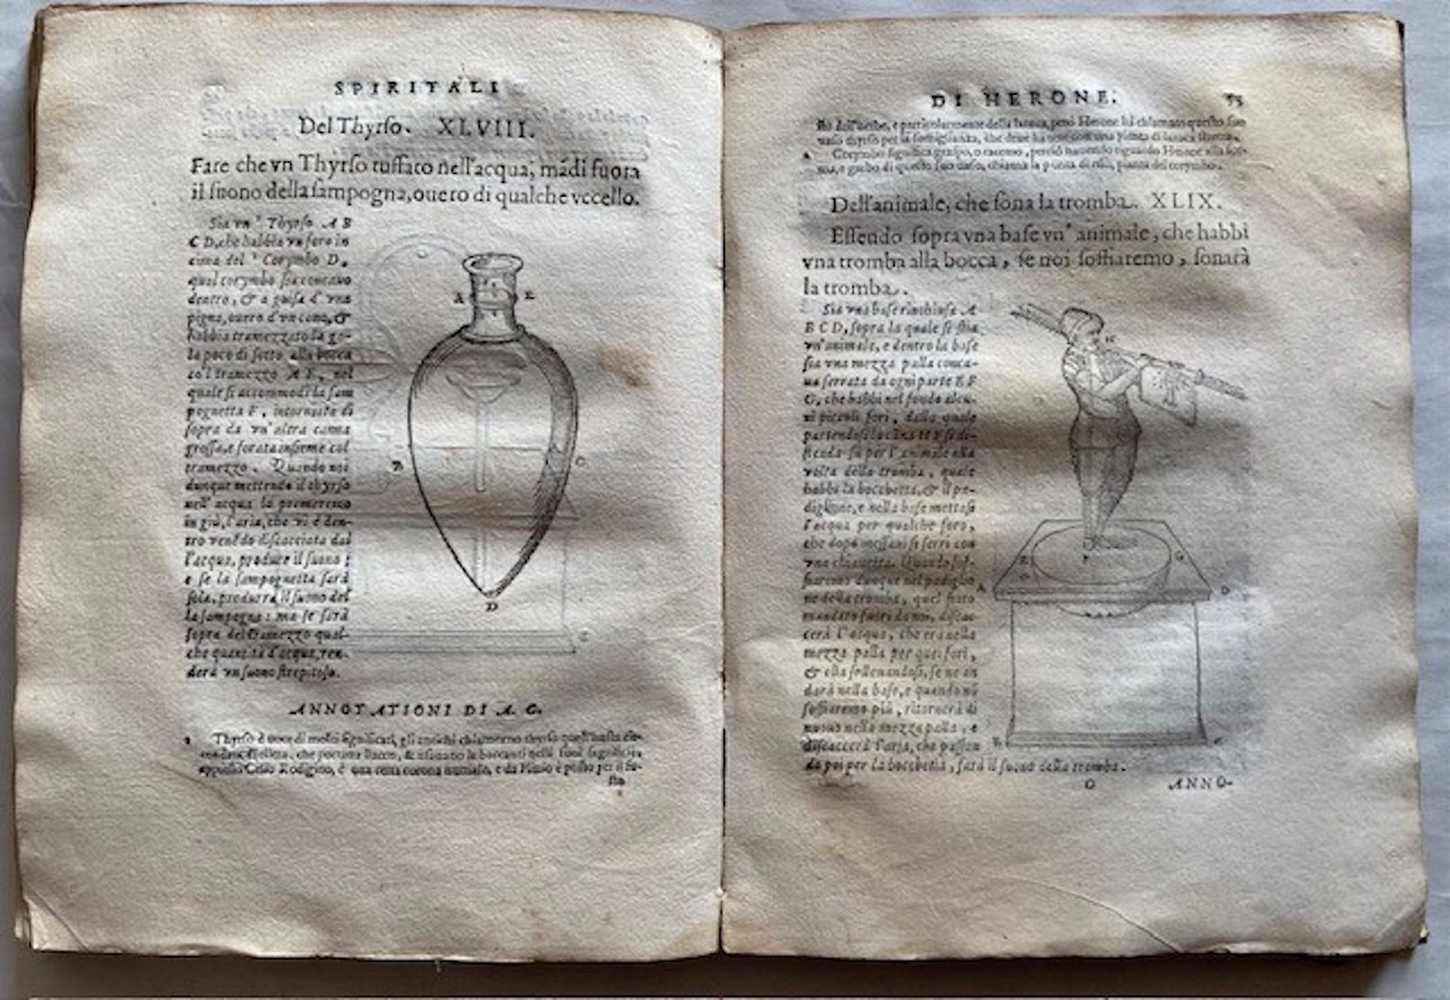 SPIRITALI
Del Thyrso. XLVIII.
Fare che vn Thyrso tuffato nell'acqua, mãdi fuora
il suono della sampogna, ouero di qualche vccello.
Sia vn' Thyrso A B
C D, che habbia vn foro in
cima del Corymbo D,
qual corymbo sia concauo
dentro, & a guisa d'vna
pigna, ouero d'vn cono, &
habbia tramezzato la go-
la poco di sotto alla bocca
co'l tramezzo A E, nel
quale si accommodi la sam
pognetta F, intorniata di
sopra da vn' altra canna
grossa, e forata insieme col
tramezzo. Quando noi
dunque mettendo il thyrso
nell' acqua lo premeremo
in giù, l'aria, che vi è den-
tro venẽdo discacciata dal
l'acqua, produrà il suono:
e se la sampognetta sarà
sola, produrrà il suono del
la sampogna: ma se sarà
sopra del tramezzo qual-
che quantità d'acqua, ren-
derà vn suono strepitoso.
A B C D E
ANNOTATIONI DI A. G.
Thyrso è voce di molti significati, gli antichi chiamorno thyrso quell'hasta cir-
condata di ellera, che portaua Bacco, & vsauano le baccanti nelli suoi sagrificij,
appresso Celio Rodigino, è una certa corona nuttiale, e da Plinio è posto per il fu-
sto
DI HERONE. 53
sto dell'herbe, e particolarmente della lattuca, però Herone hà chiamato questo suo
vaso thyrso per la somiglianza, che deue hauere con una pianta di lattuca
Corymbo significa graspo, o racemo, perciò hauendo riguardo Herone alla for-
ma, e garbo di questo suo vaso, chiama la punta di esso, pianta del corymbo.
Dell'animale, che sona la tromba. XLIX.
Essendo sopra vna base vn' animale, che habbi
vna tromba alla bocca, se noi soffiaremo, sonarà
la tromba.
Sia vna base rinchiusa A
B C D, sopra la quale si stia
vn' animale, e dentro la base
sia vna mezza palla conca-
ua serrata da ogni parte E F
G, che habbi nel fondo alcu-
ni piccoli fori, dalla quale
partendosi la cãna
stenda sù per l'animale alla
volta della tromba, quale
habbi la bocchetta, & il pa-
diglione, e nella base mettasi
l'acqua per qualche foro,
che dopò messaui si serri con
vna chiauetta. Quando sof-
fiaremo dunque nel padiglio
ne della tromba, quel fiato
mandato fuori da noi, discac
cerà l'acqua, che era nella
mezza palla per quei fori,
& ella solleuandosi, se ne an
darà nella base, e quando nõ
soffiaremo più, ritornerà di
nuouo nella mezza palla, e
discaccerà l'aria, che passan
do poi per la bocchetta, farà il suono della tromba.
O ANNO-